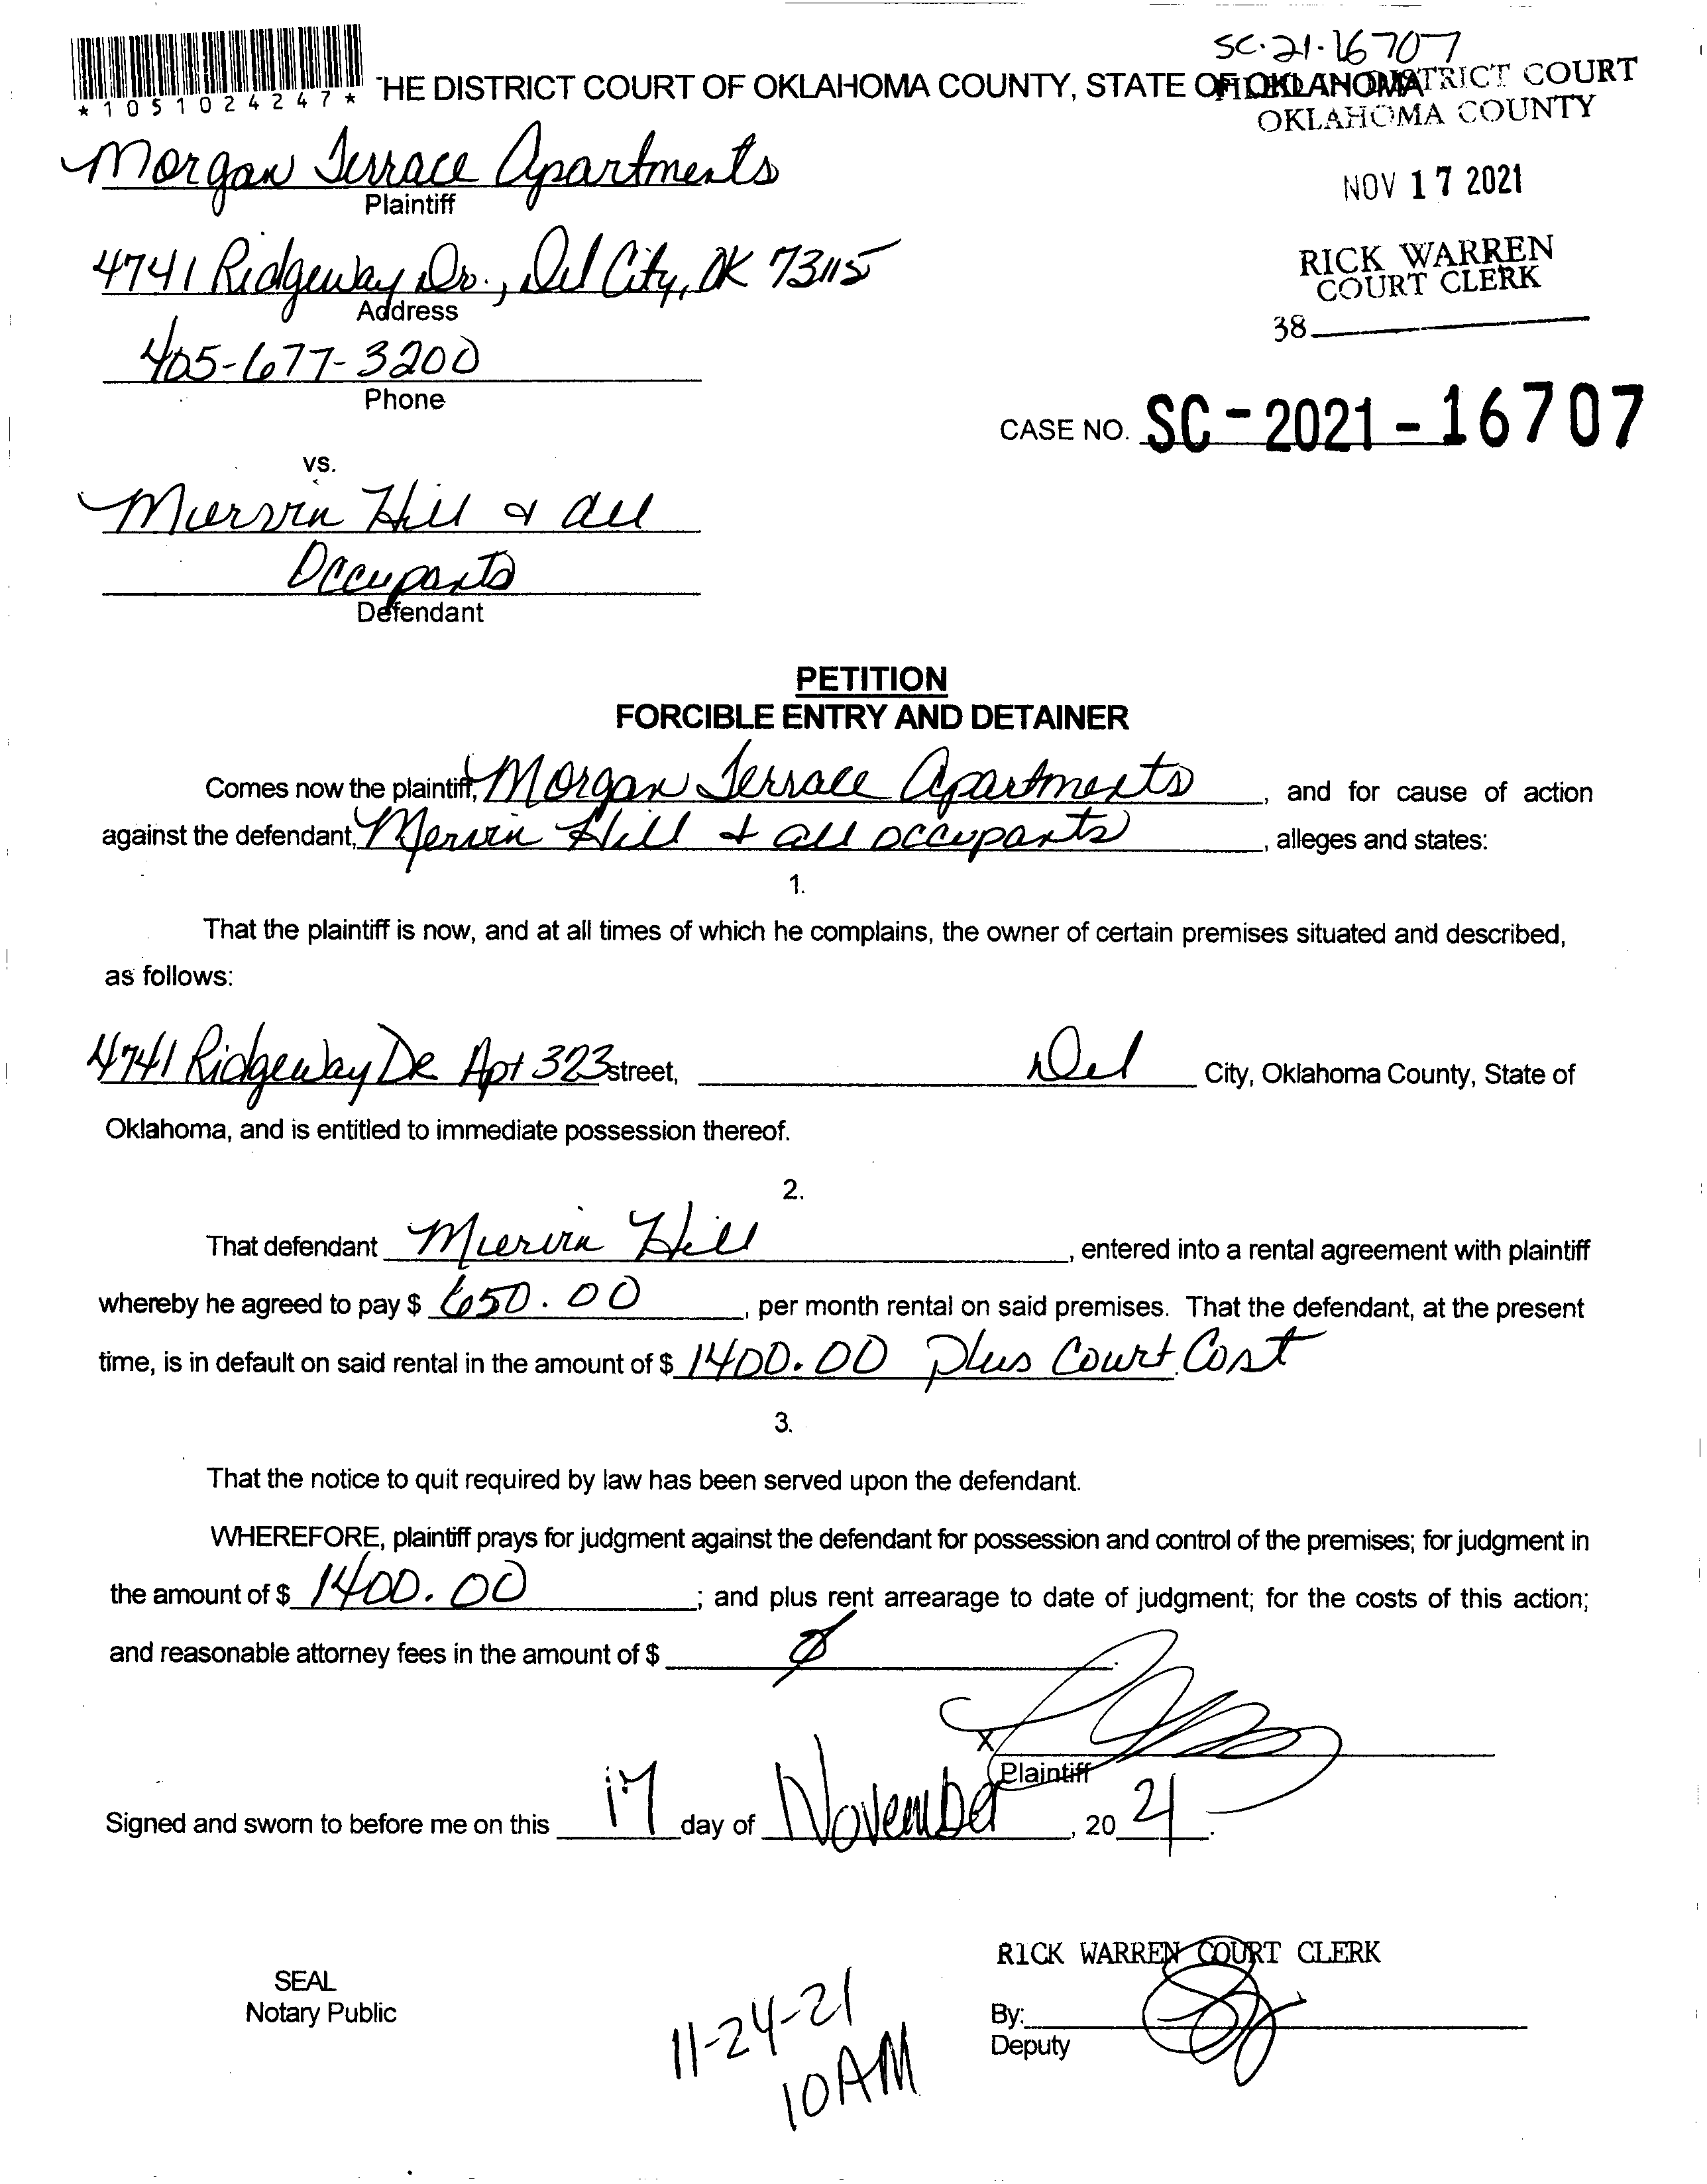 SC-21-16707
*1051024247* 'HE DISTRICT COURT OF OKLAHOMA COUNTY, STATE OF OKLAHOMA
FILED IN DISTRICT COURT
OKLAHOMA COUNTY
Morgan Terrace Apartments
Plaintiff
NOV 17 2021
4741 Ridgeway Dr., Del City, OK 73115
Address
RICK WARREN
COURT CLERK
38
405-677-3200
Phone
CASE NO. SC-2021-16707
vs.
Miervin Hill & all
Occupants
Defendant
PETITION
FORCIBLE ENTRY AND DETAINER
Comes now the plaintiff, Morgan Terrace Apartments, and for cause of action
against the defendant, Mervin Hill & all occupants, alleges and states:
1.
That the plaintiff is now, and at all times of which he complains, the owner of certain premises situated and described,
as follows:
4741 Ridgeway DR Apt 323 street, Del City, Oklahoma County, State of
Oklahoma, and is entitled to immediate possession thereof.
2.
That defendant Miervin Hill, entered into a rental agreement with plaintiff
whereby he agreed to pay $ 650.00, per month rental on said premises. That the defendant, at the present
time, is in default on said rental in the amount of $ 1400.00 plus Court Cost
3.
That the notice to quit required by law has been served upon the defendant.
WHEREFORE, plaintiff prays for judgment against the defendant for possession and control of the premises; for judgment in
the amount of $ 1400.00; and plus rent arrearage to date of judgment; for the costs of this action;
and reasonable attorney fees in the amount of $ Ø
X
Plaintiff
Signed and sworn to before me on this 17 day of November, 2021.
RICK WARREN COURT CLERK
SEAL
Notary Public
By:
Deputy
11-24-21
10AM